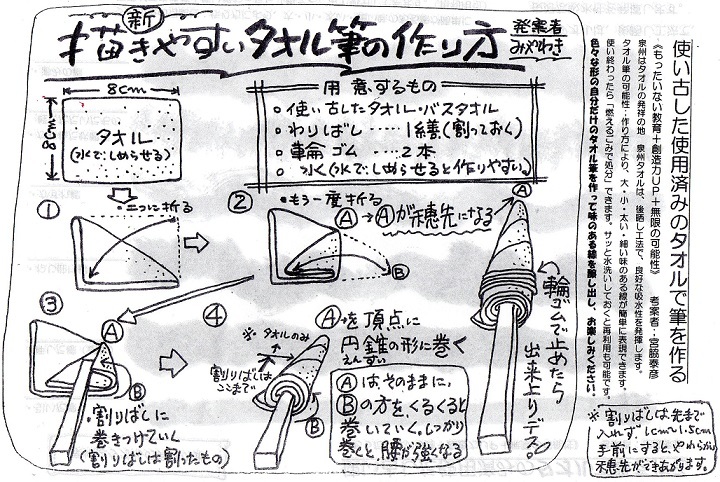 新
描きやすいタオル筆の作り方
発案者
みやわき
8cm
8cm
タオル
(水でしめらせる)
用意するもの
○使い古したタオル・バスタオル
○わりばし……1膳(割っておく)
○輪ゴム……2本
○水(水でしめらせると作りやすい。)
①
・二つに折る
②
・もう一度折る
Ⓐ→Ⓐが穂先になる
Ⓐ
Ⓑ
③
Ⓐ
Ⓑ
・割りばしに
巻きつけていく
(割りばしは割ったもの)
④
※タオルのみ
割りばしは
ここまで
Ⓐ
Ⓑ
Ⓐを頂点に
円錐の形に巻く
えんすい
Ⓐは、そのままに、
Ⓑの方を、くるくると
巻いていく。しっかり
巻くと、腰が強くなる
輪ゴムで止めたら
出来上りデス。
使い古した使用済みのタオルで筆を作る
《もったいない教育+創造力UP+無限の可能性》 考案者:宮脇泰彦
泉州はタオルの発祥の地 泉州タオルは、後晒し工法で、良好な吸水性を発揮します。
タオル筆の可能性:作り方により、大・小・太い・細い味のある線が簡単に表現できます。
使い終わったら「燃えるごみで処分」できます。サッと水洗いしておくと再利用も可能です。
色々な形の自分だけのタオル筆を作って味のある線を醸し出し、お楽しみください。
※割りばしは、先まで
入れず、1cm〜1.5cm
手前にすると、やわらかい
穂先ができあがります。